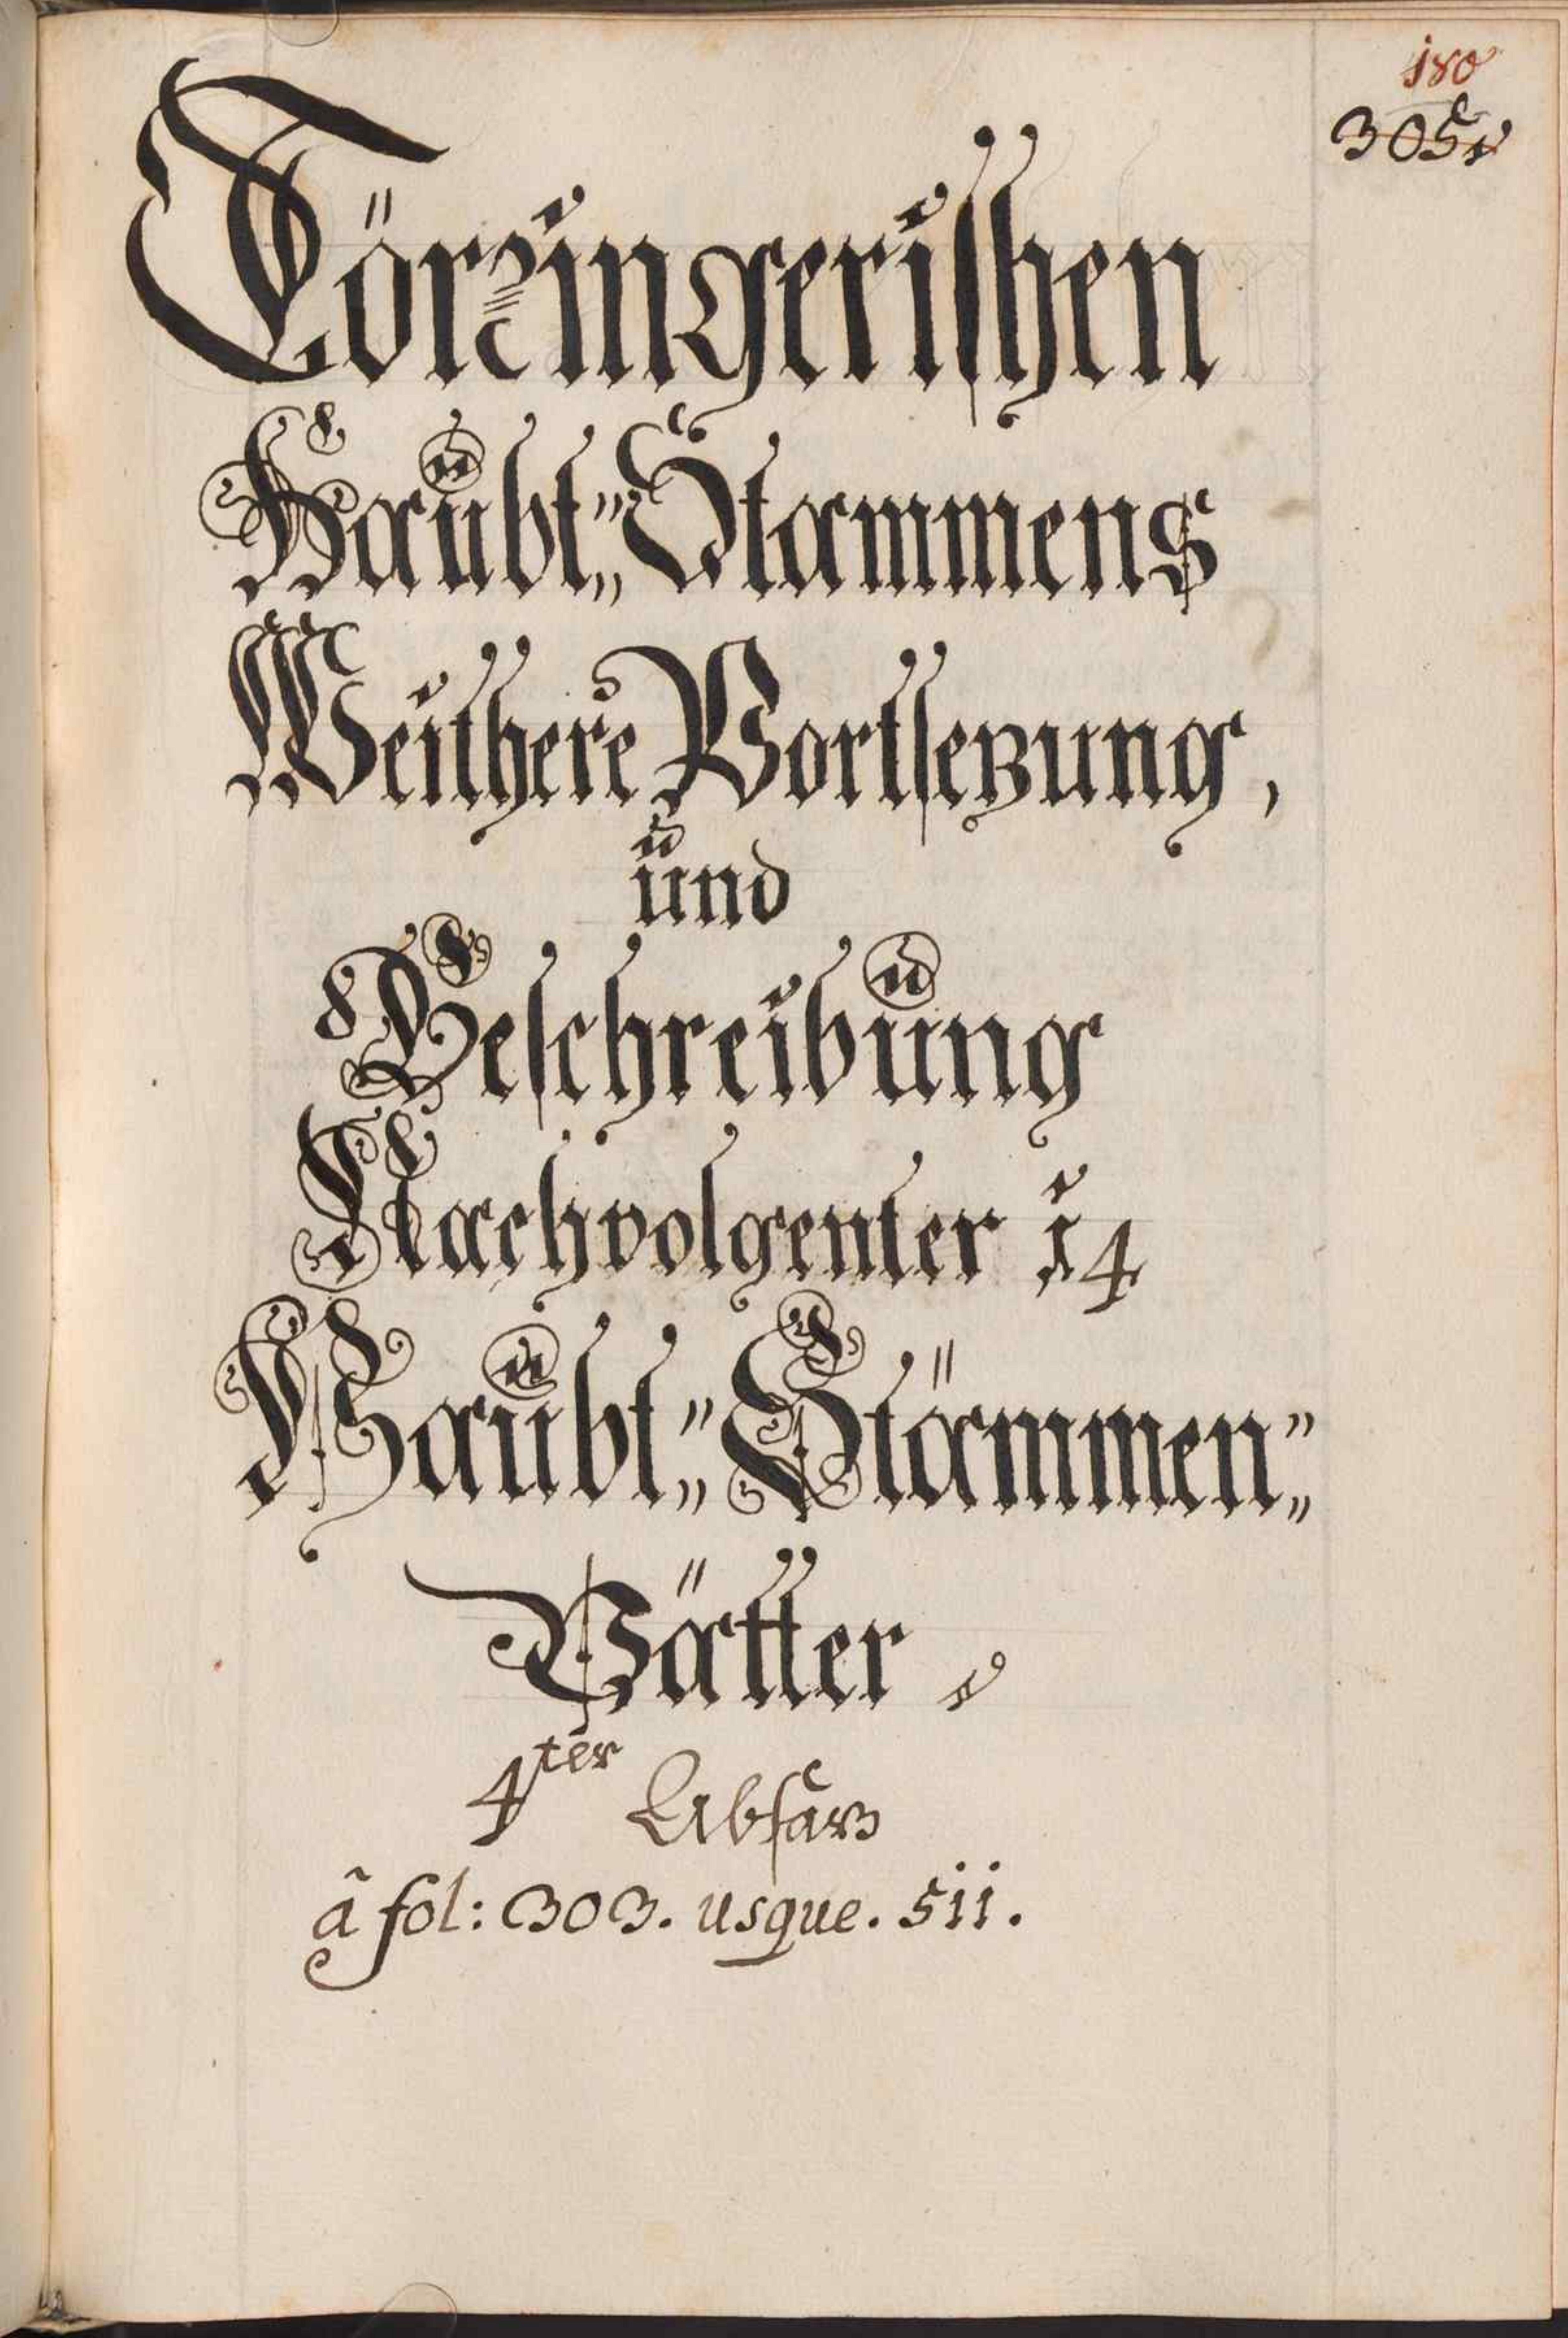 180
305
Törzingerishen
Haubt„Stammens
Weithere Vortsezung,
und
Beschreibung
Nachvolgenter 14
Haubt„Stämmen„
Vätter
4ter Absaz
â fol: 303. usque. 511.